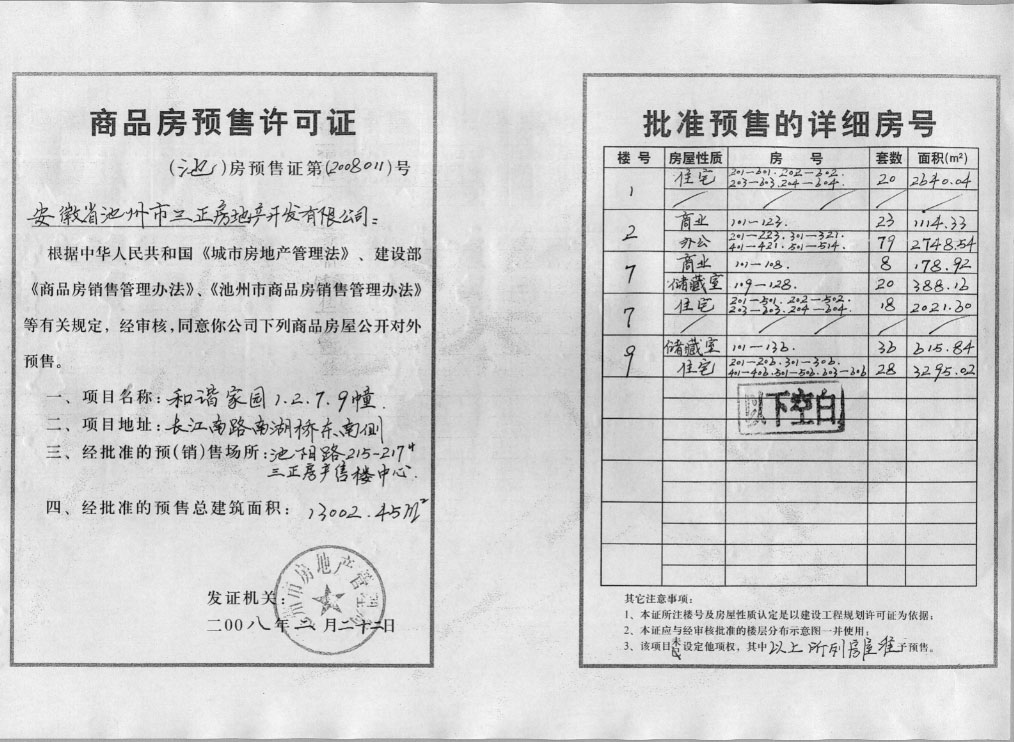 商品房预售许可证
(池)房预售证第(2008011)号
安徽省池州市三正房地产开发有限公司:
根据中华人民共和国《城市房地产管理法》、建设部
《商品房销售管理办法》、《池州市商品房销售管理办法》
等有关规定，经审核，同意你公司下列商品房屋公开对外
预售。
一、项目名称:和谐家园1.2.7.9幢.
二、项目地址:长江南路南湖桥东南侧
三、经批准的预(销)售场所:池阳路215-217#
三正房产售楼中心.
四、经批准的预售总建筑面积: 13002.45m²
发证机关:
二00八年 月二十二日
批准预售的详细房号
楼号 房屋性质 房号 套数 面积(m²)
1 住宅 201—601. 202—602. 20 2640.04
203—603. 204—604.
2 商业 101—123. 23 1114.33
办公 201—223. 301—321. 79 2748.54
401—421. 501—514.
7 商业 101—108. 8 178.92
储藏室 109—128. 20 388.16
7 住宅 201—501. 202—502. 18 2021.30
203—603. 204—604.
9 储藏室 101—136. 36 615.84
住宅 201—206. 301—306. 28 3295.02
401—406. 501—506. 603—606
以下空白
其它注意事项:
1、本证所注楼号及房屋性质认定是以建设工程规划许可证为依据;
2、本证应与经审核批准的楼层分布示意图一并使用;
3、该项目未设定他项权，其中以上所列房屋准予预售。